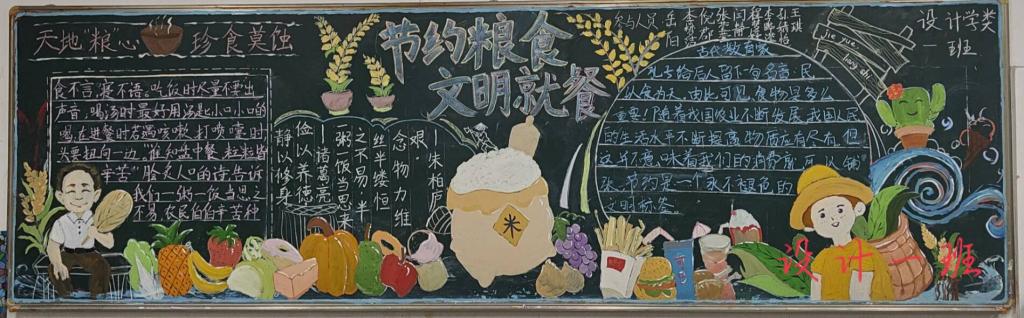 天地"粮"心 珍食莫蚀
食不言,寝不语。吃饭时尽量不要出
声音,喝汤时最好用汤匙小口小口的
喝,在进餐时若遇咳嗽、打喷嚏时
头要扭向一边。"谁知盘中餐,粒粒皆
辛苦"脍炙人口的诗告诉
我们一粥一饭当思之
不易,农民伯伯辛苦种
静以修身
俭以养德
—诸葛亮
粥一饭当思来
之不易 半
丝半缕恒
念物力维
艰。
—朱柏庐
节约粮食
文明就餐
米
参与人员
古代教育家
孔子给后人留下一句名言:民
以食为天。由此可见,食物是多么
重要!随着我国农业不断发展,我国人民
的生活水平不断提高,物质应有尽有,但
这并不意味着我们的消费就可以铺
张。节约是一个永不褪色的
文明标签
jie yue
liang shi
设计学类
一班
设计一班